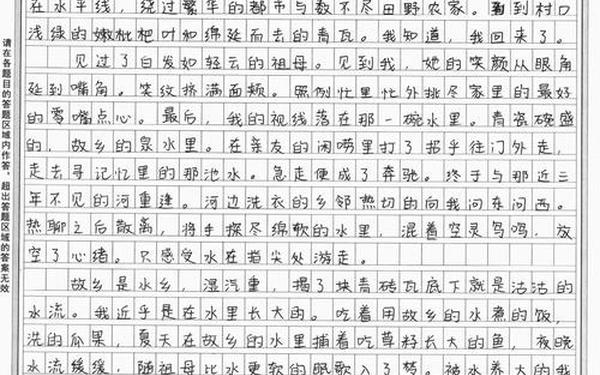 在水平线，绕过繁华的都市与数不尽田野农家。看到村口
浅绿的嫩枇杷叶和绵延而去的青瓦。我知道，我回来了。
见过了白发如轻云的祖母。见到我，她的笑颜从眼角
延到嘴角。笑纹挤满面颊。照例忙里忙外挑尽家里的最好
的零嘴点心。最后，我的视线落在那一碗水里。青瓷碗盛
的，故乡的泉水里。在亲友的闲唠里打了招呼往门外走，
走去寻记忆里的那池水。急走便成了奔驰。终于与那近三
年不见的河重逢。河边洗衣的乡邻热切的向我问东问西。
热聊之后散离，将手探尽绵软的水里，混着空灵鸟鸣，放
空了心绪。只感受水在指尖处游走。
故乡是水乡，湿汽重，揭了块青砖瓦底下就是沽沽的
水流。我近乎是在水里长大的。吃着用故乡的水煮的饭，
洗的瓜果，夏天在故乡的水里捕着吃草籽长大的鱼，夜晚
水流缓缓，随祖母比水更软的眠歌入了梦。被水养大的我
请在各题目的答题区域内作答，超出答题区域的答案无效